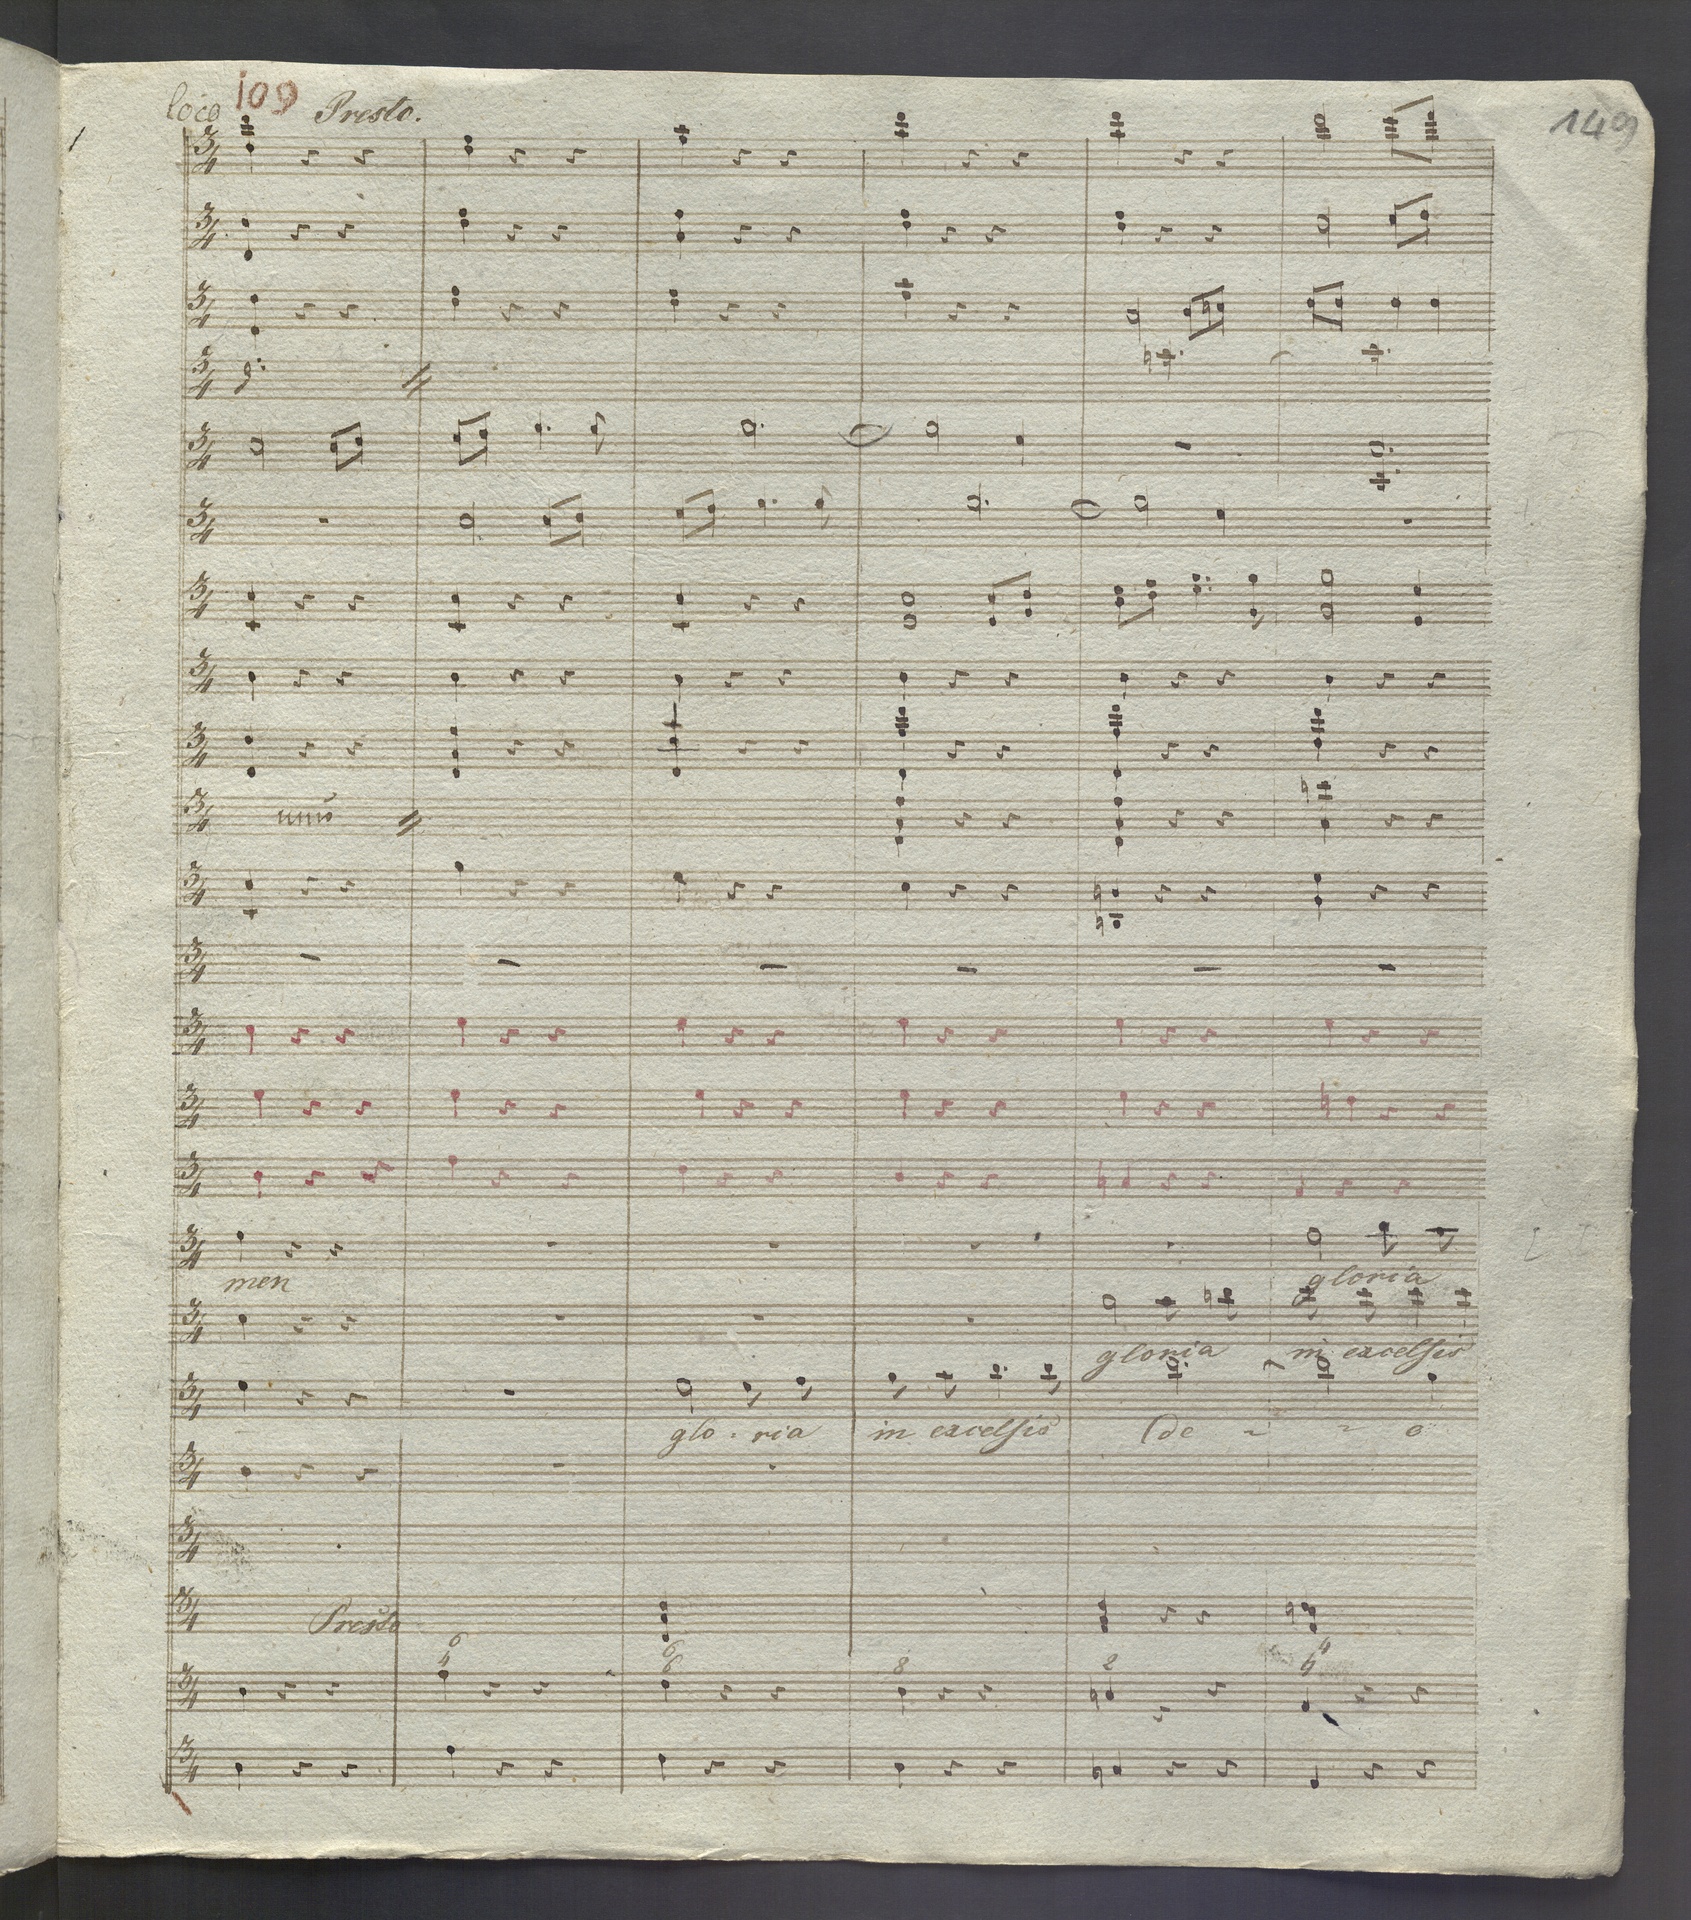 loco 109 Presto.
149
unis
men
gloria
gloria in excelsis
glo - ria in excelsis De - - o
Presto
6 6
4 6 8 8 4
6